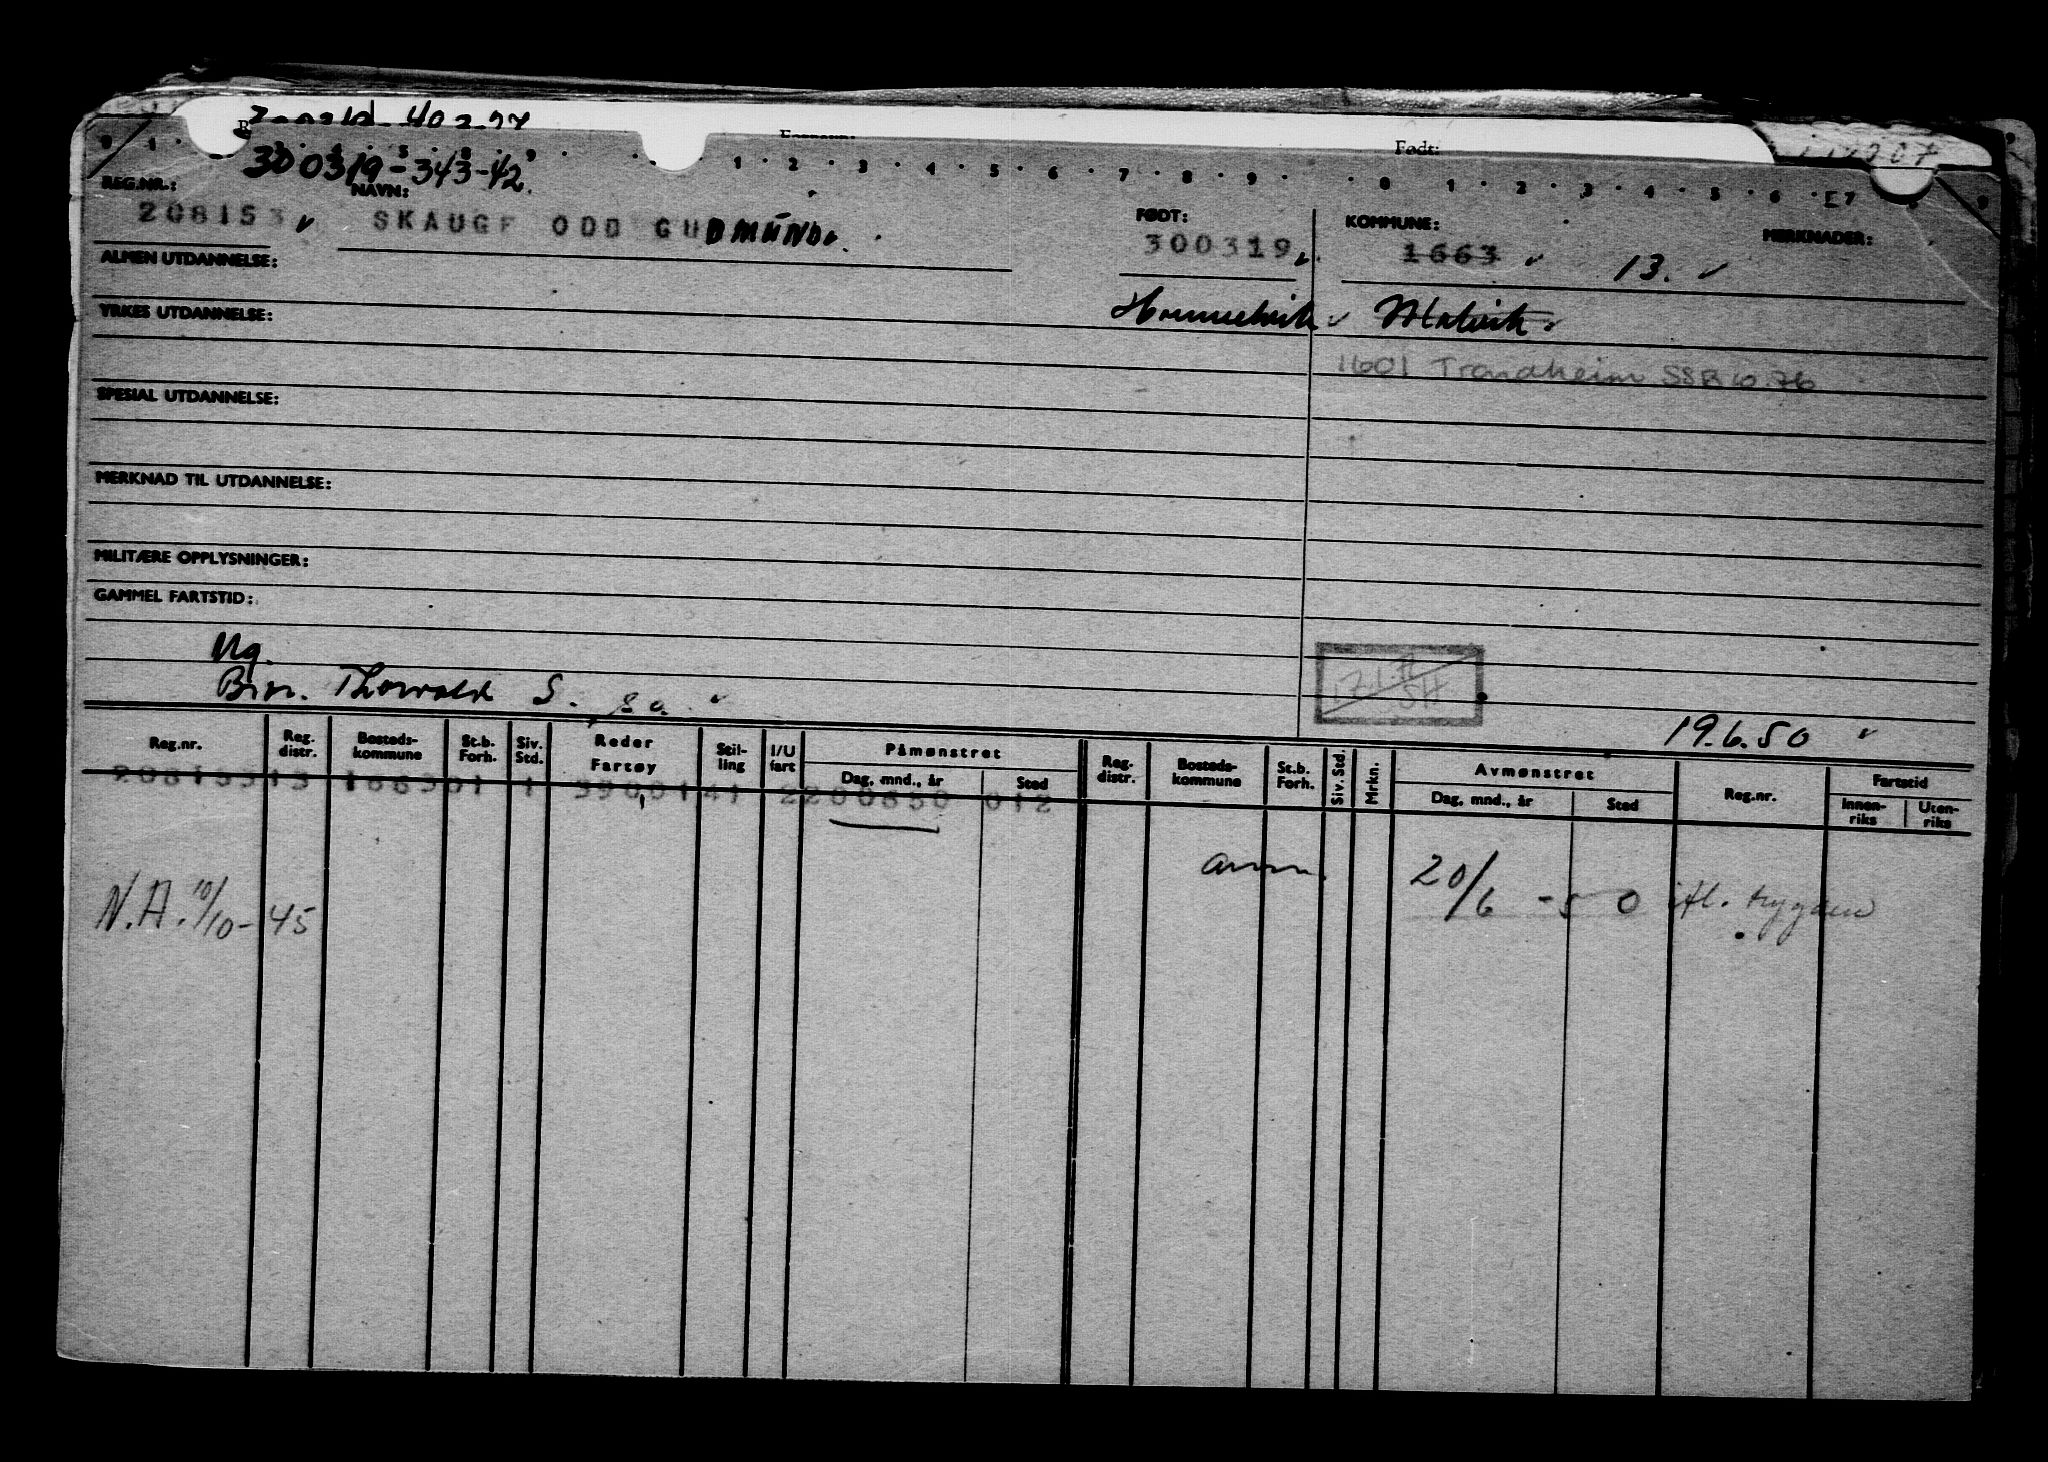 Født:
0 1 2 3 4 5 6 7 8 9
1 2 3 4 5 6 7 8 9
0 1 2 3 4 5 6 7
300319-343-42.
REG.NR.: NAVN: FØDT: KOMMUNE: MERKNADER:
208153 SKAUGE ODD GUDMUND. 300319 1663 13.
ALMEN UTDANNELSE:
Hommelvik Malvik
YRKES UTDANNELSE:
1601 Trondheim SSR 10.76
SPESIAL UTDANNELSE:
MERKNAD TIL UTDANNELSE:
MILITÆRE OPPLYSNINGER:
GAMMEL FARTSTID:
Ug.
Bror. Thorvald S.
19.6.50
Reg.nr. Reg. distr. Bosteds-kommune St.b. Forh. Siv. Std. Reder Fartøy Stil-ling I/U fart Påmønstret Dag, mnd., år Sted Reg. distr. Bosteds-kommune St.b. Forh. Siv. Std. Mrkn. Avmønstret Dag, mnd., år Sted Reg.nr. Fartstid Innen-riks Uten-riks
208153 13 1663 01 1 39001 41 2 200650 012
anm. 20/6 -50 ifl. trygden
N.A. 10/10-45